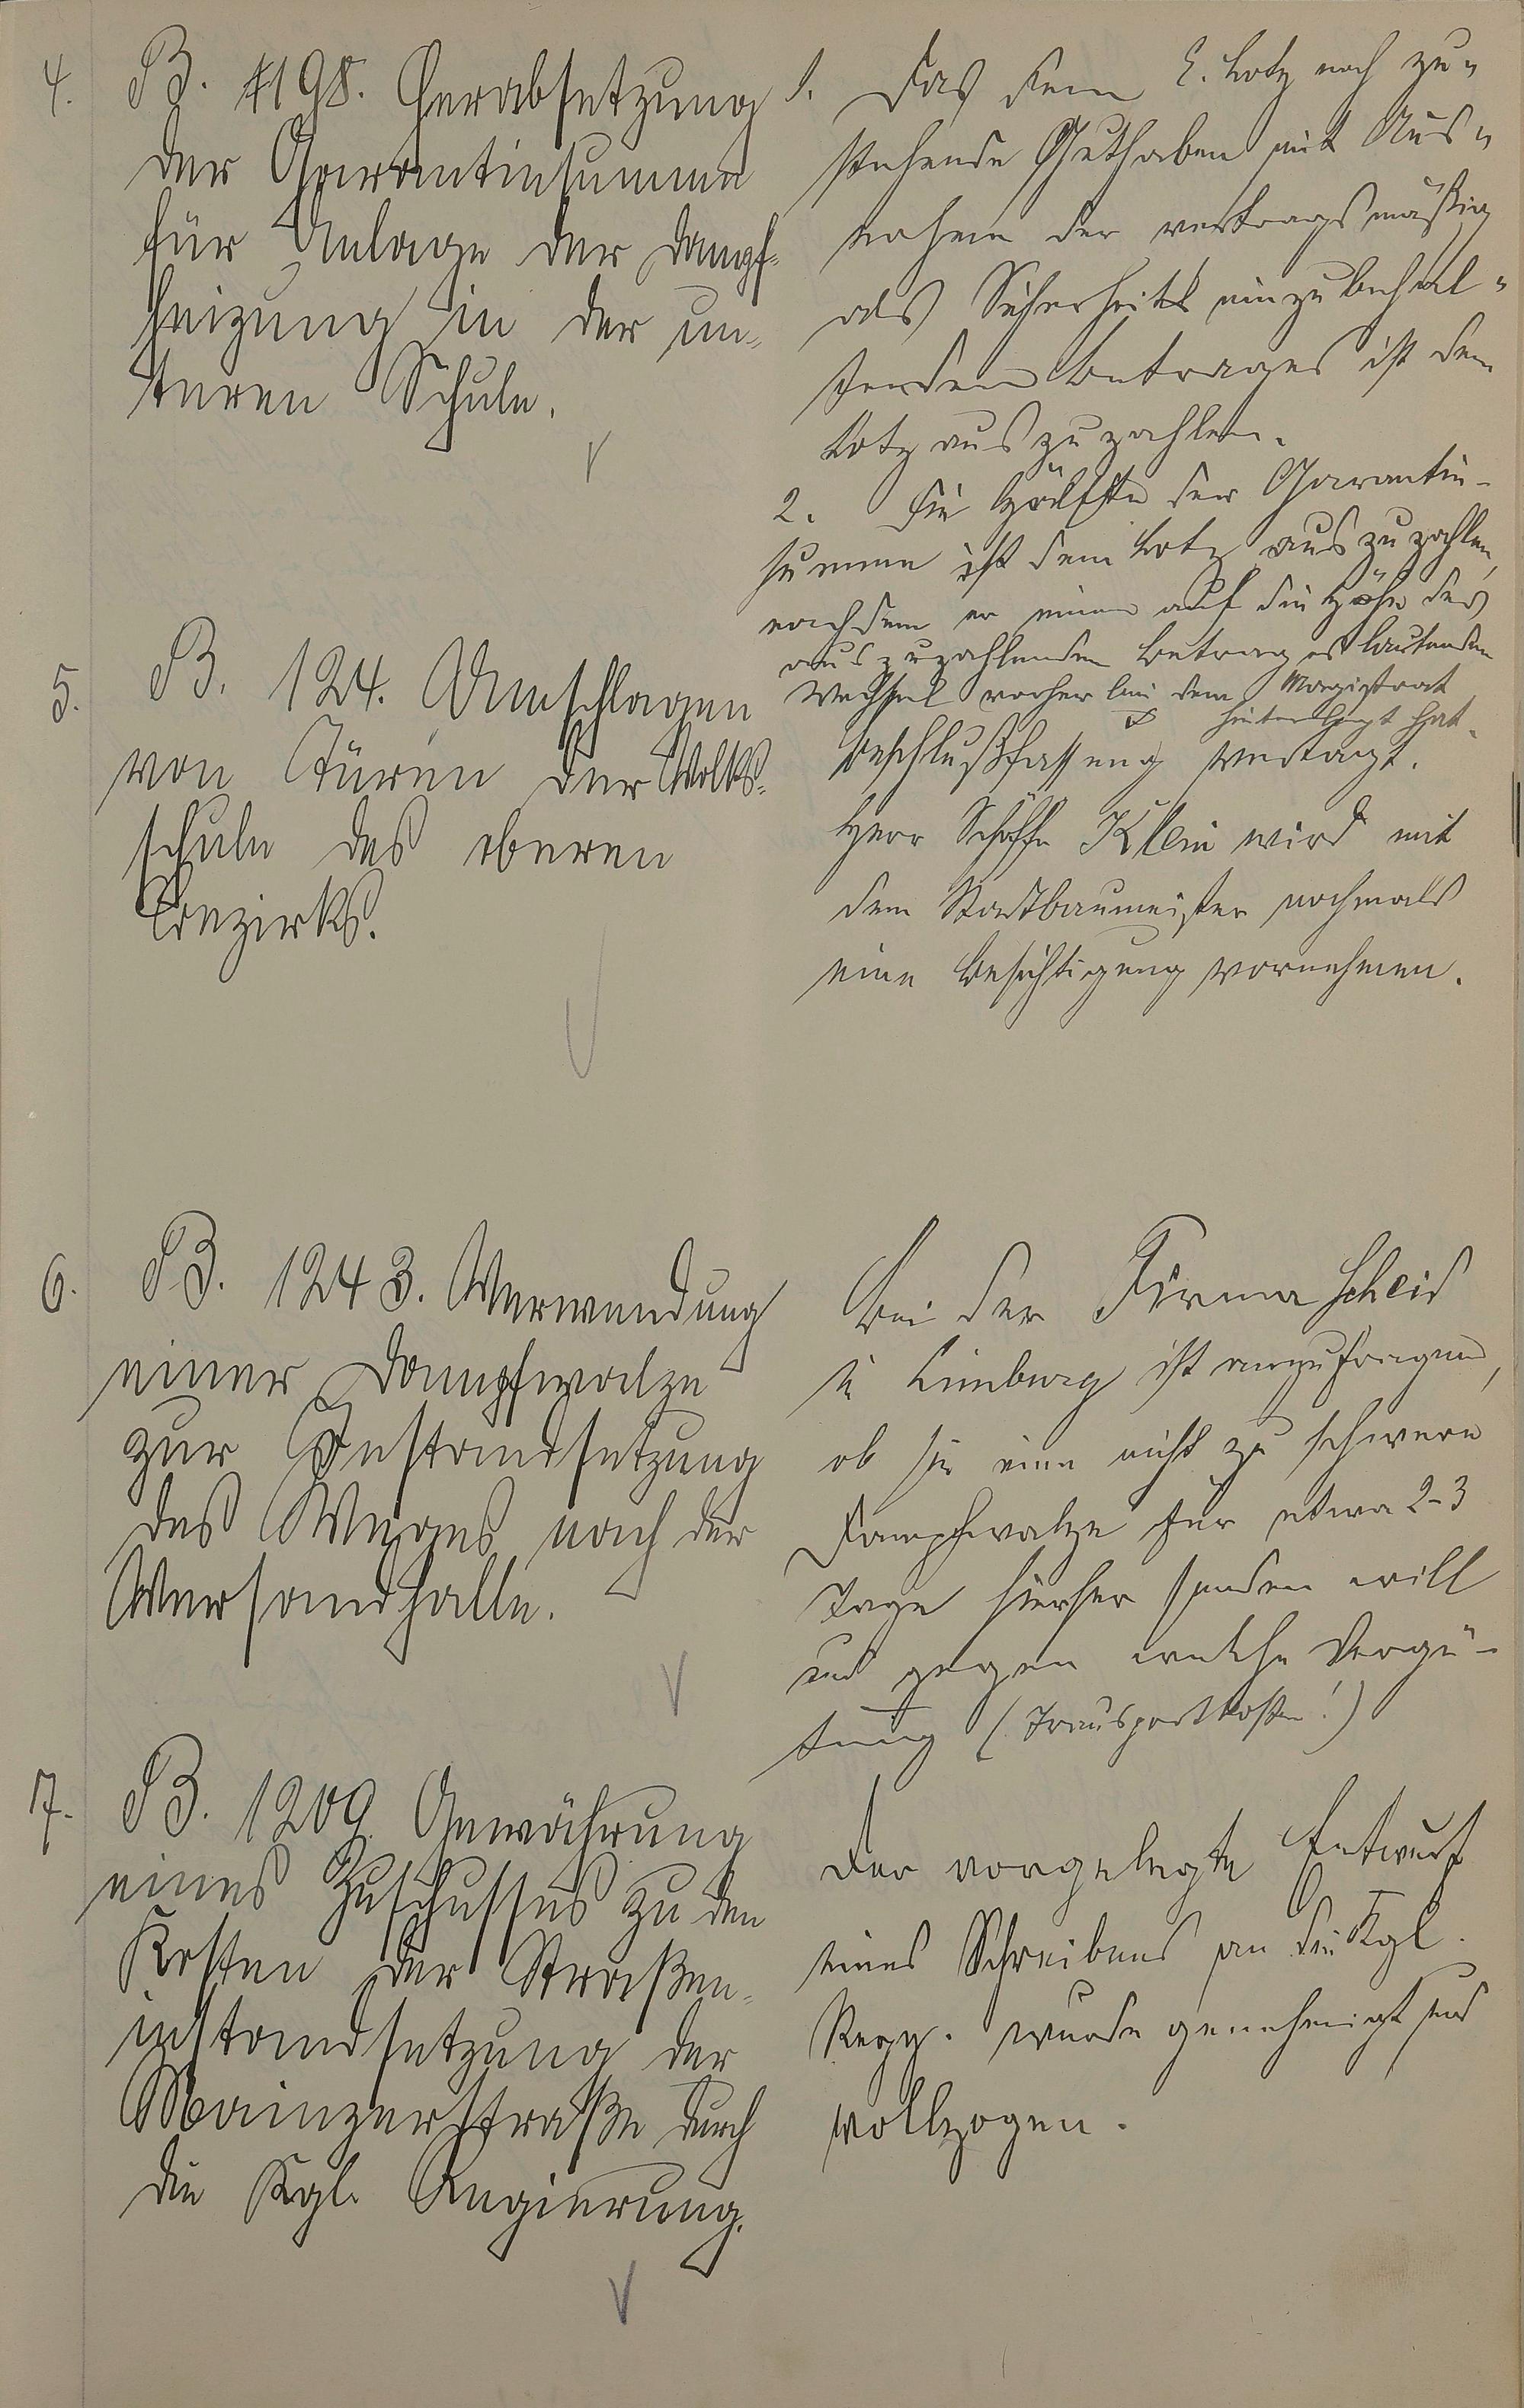 4. B. 1198. Herabsetzung
der Garantiesumme
für Anlage der Dampf-
heizung in der un-
teren Schule.
1. Das dem E. Lotz noch zu-
stehende Guthaben mit Aus-
nahme der vertragsmäßig
als Sicherheit einzubehal-
tenden Betrages ist dem
Lotz auszuzahlen.
2. Die Hälfte der Garantie-
summe ist dem Lotz auszuzahlen,
nachdem er einen auf die Höhe des
auszuzahlenden Betrages lautenden
Wechsel vorher bei dem Magistrat
hinterlegt hat.
5. B. 124. Umschlagen
von Türen der Volks-
schule des oberen
Bezirks.
Beschlußfassung vertagt.
Herr Schöffe Klein wird mit
dem Stadtbaumeister nochmals
eine Besichtigung vornehmen.
6. B. 1243. Verwendung
einer Dampfwalze
zur Instandsetzung
des Weges nach der
Versandhalle.
Bei der Firma Scheid
in Limburg ist anzufragen,
ob sie eine nicht zu schwere
Dampfwalze für etwa 2-3
Tage hierher senden will
und gegen welche Vergü-
tung (Transportkosten!)
7. B. 1209 Gewährung
eines Zuschusses zu den
Kosten der Straßen-
instandsetzung der
Mainzerstraße durch
die Kgl. Regierung.
Der vorgelegte Entwurf
eines Schreibens an die Kgl.
Regg. wurde genehmigt und
vollzogen.